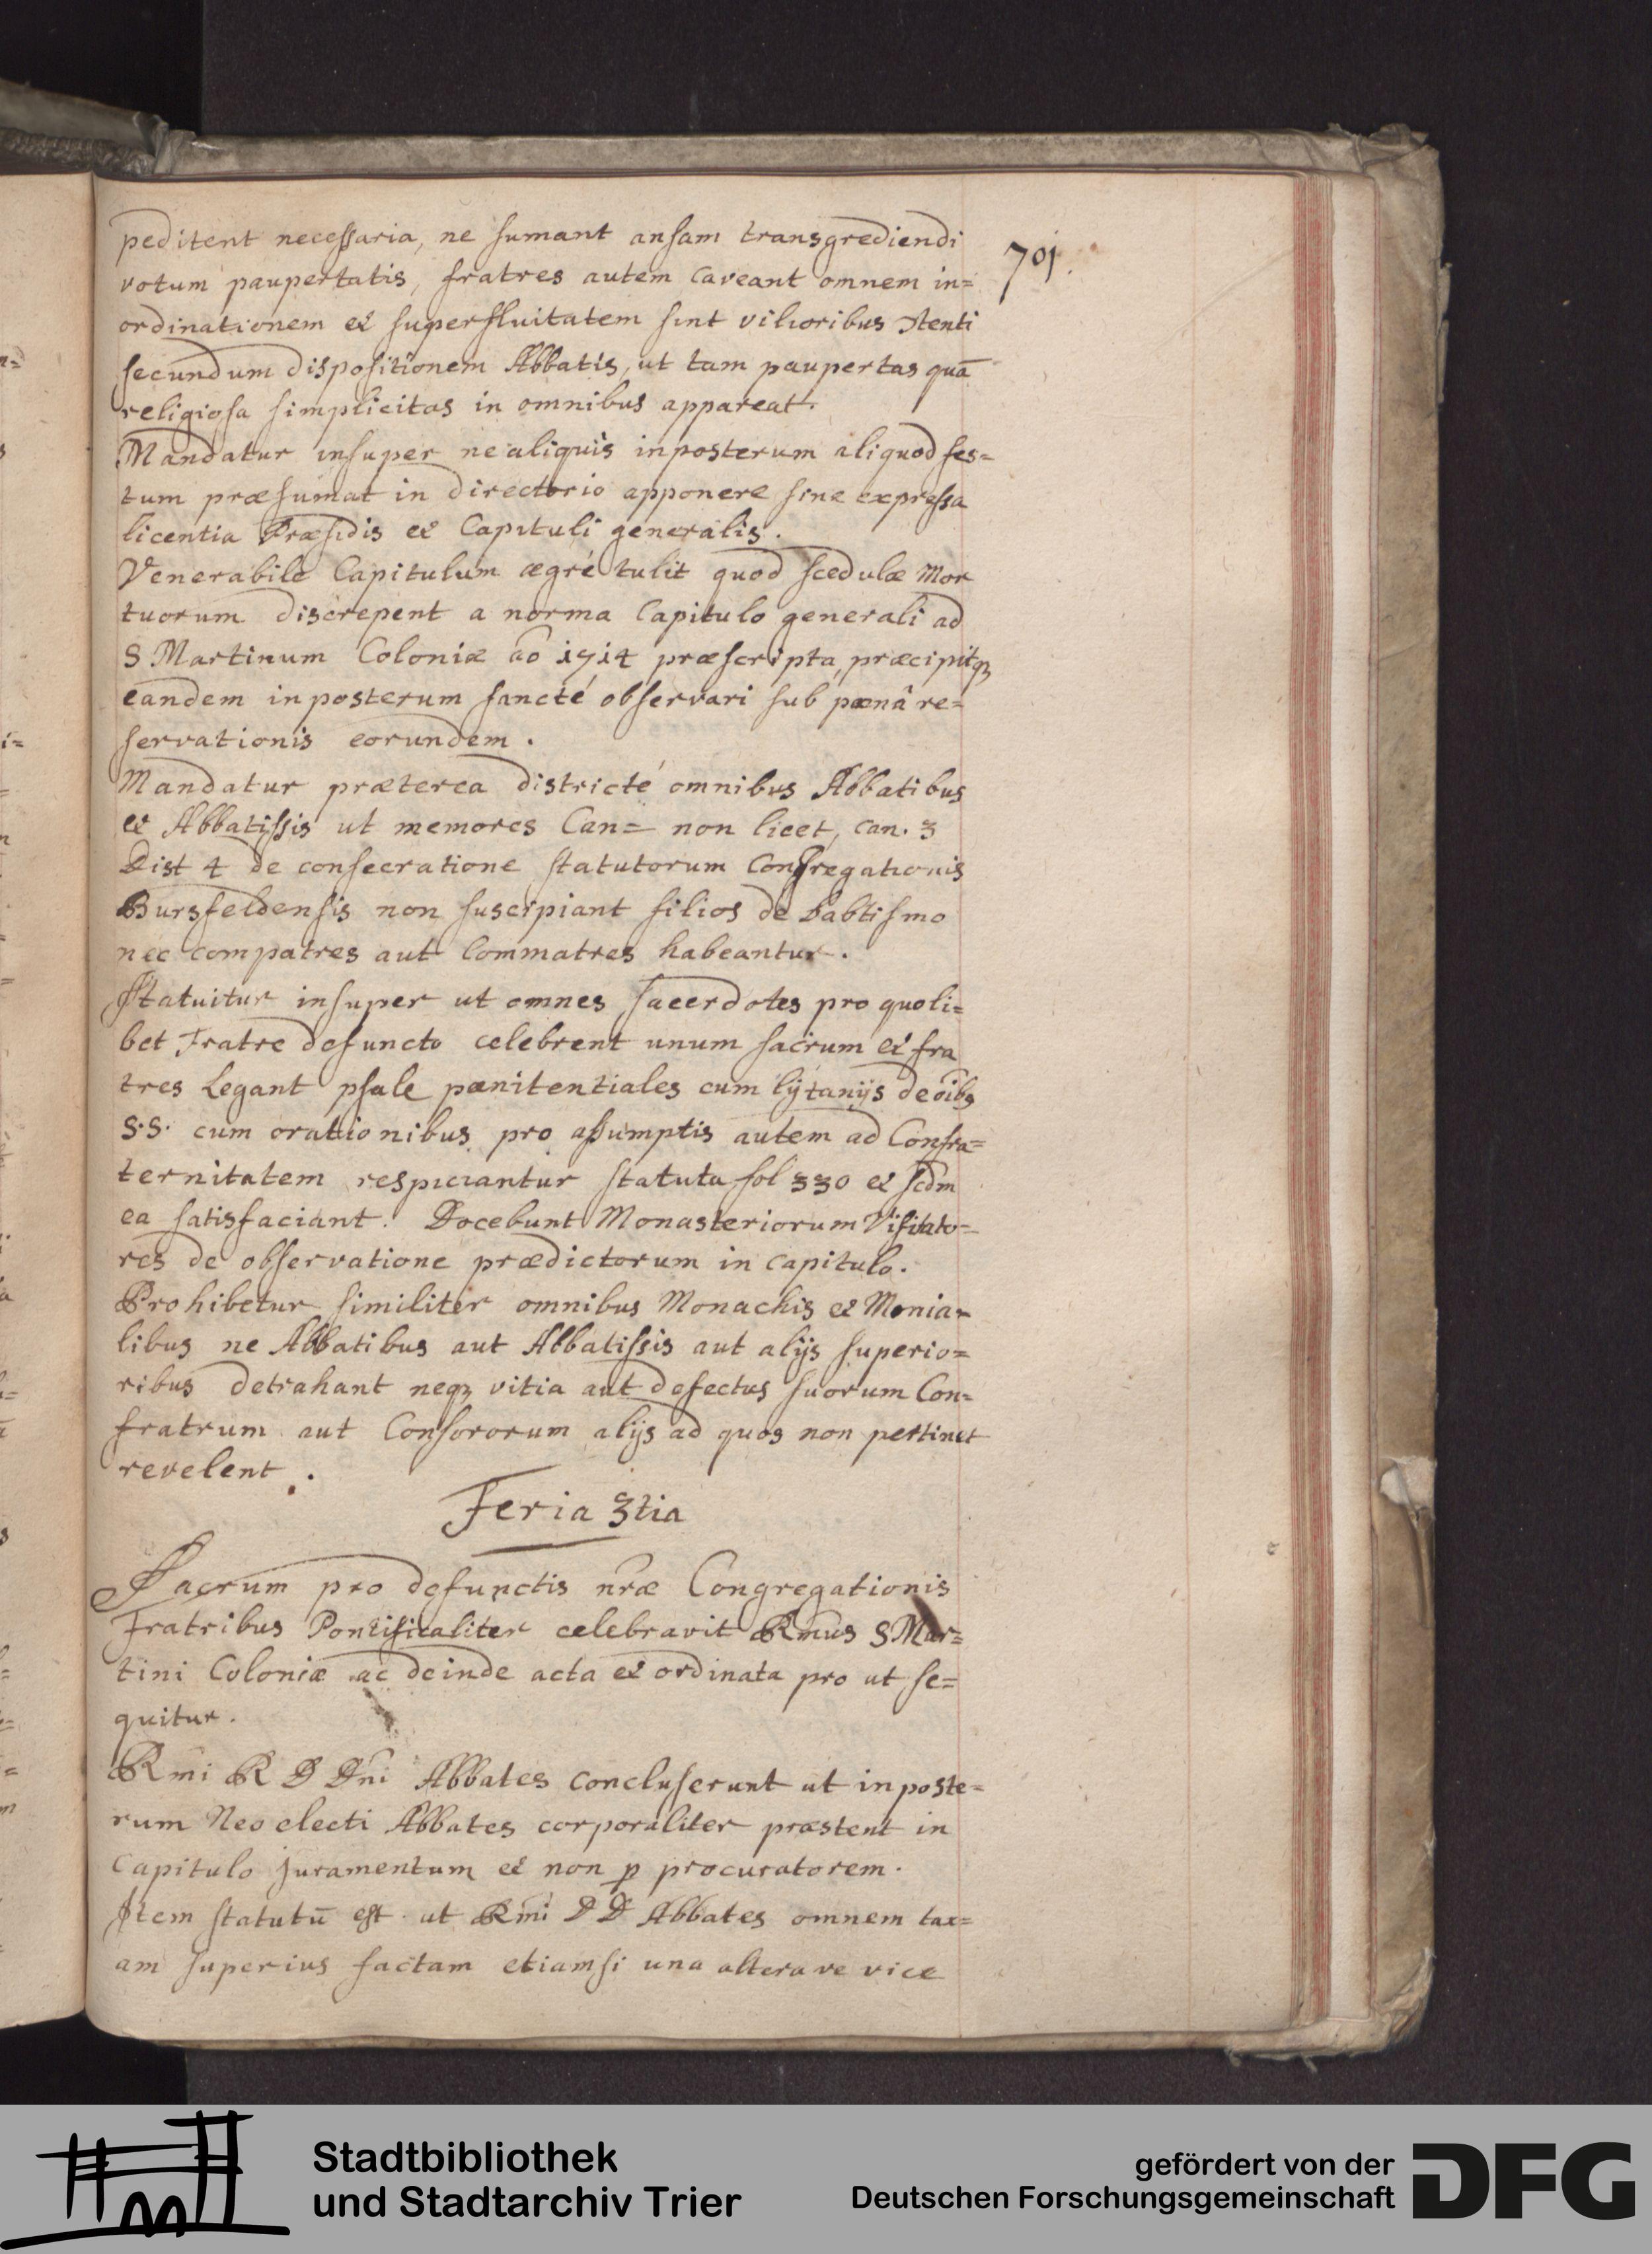 peditent necessaria, ne sumant ansam transgrediendi
701.
votum paupertatis, fratres autem caveant omnem in=
ordinationem et superfluitatem sint vilioribus 9tenti
secundum dispositionem Abbatis, ut tam paupertas quā
religiosa simplicitas in omnibus appareat.
Mandatur insuper ne aliquis inposterum aliquod fes=
tum præsumat in directorio apponere sine expressa
licentia Præsidis et Capituli generalis.
Venerabile Capitulum ægré tulit quod scedulæ Mor
tuorum discrepent a norma Capitulo generali ad
S Martinum Coloniæ aō 1714 præscripta, præcipitqꝫ
eandem inposterum sancté observari sub pœnâ re=
servationis eorundem.
Mandatur præterea districté omnibus Abbatibus
et Abbatissis ut memores Can= non licet, can. 3
Dist 4 de consecratione statutorum Congregationis
Bursfeldensis non suscipiant filios de babtismo
nec compatres aut Commatres habeantur.
Statuitur insuper ut omnes sacerdotes pro quoli=
bet Fratre defuncto celebrent unum sacrum et fra
tres Legant psale pœnitentiales cum lÿtanijs de oībs
S.S. cum orationibus pro assumptis autem ad Confra=
ternitatem respiciantur statuta fol 330 et scdm
ea satisfaciant. Docebunt Monasteriorum Visitato=
res de observatione prædictorum in capitulo.
Prohibetur similiter omnibus Monachis et Monia=
libus ne Abbatibus aut Abbatissis aut alijs superio=
ribus detrahant neqꝫ vitia aut defectus suorum Con=
fratrum aut Consororum alijs ad quos non pertinet
revelent.
Feria 3tia
Sacrum pro defunctis nr̄æ Congregationis
Fratribus Pontificaliter celebravit Rmūs S Mar=
tini Coloniæ ac deinde acta et ordinata pro ut se=
quitur.
Rmi R D Dni Abbates concluserunt ut inposte=
rum Neo electi Abbates corporaliter præstent in
Capitulo juramentum et non ꝑ procuratorem.
Item statutū est ut Rmi D D Abbates omnem tax=
am superius factam etiamsi una alterave vice
Stadtbibliothek
und Stadtarchiv Trier
gefördert von der
Deutschen Forschungsgemeinschaft
DFG